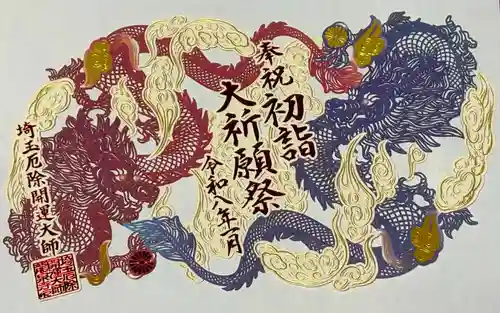 奉祝初詣
大祈願祭
令和八年一月
埼玉厄除開運大師